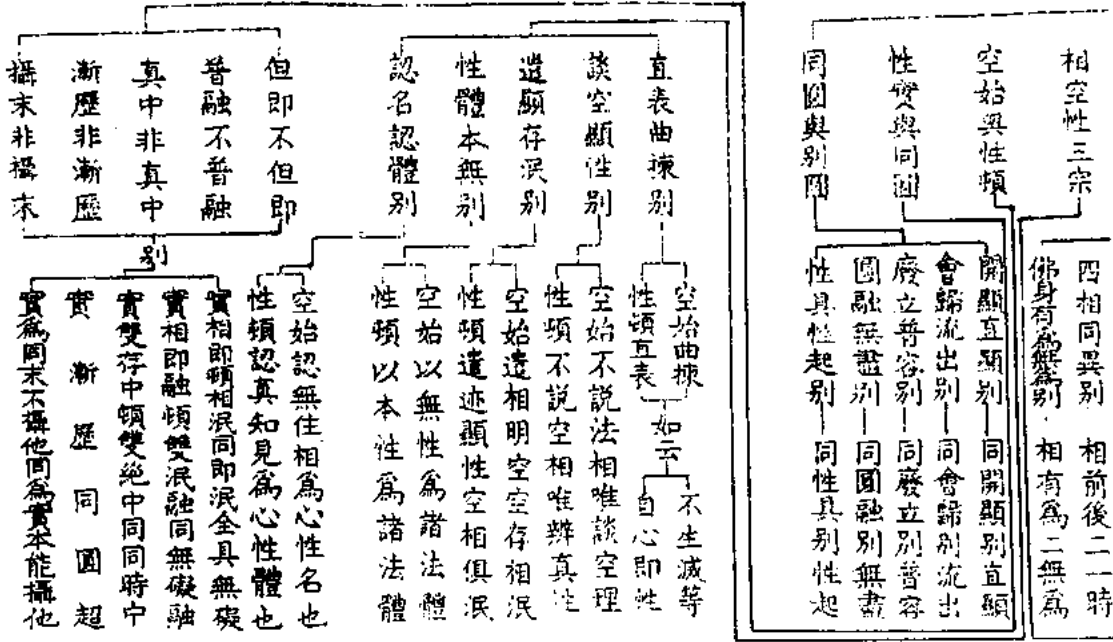 相空性三宗
空始與性頓
性實與同圓
同圓與別圓
四相同異別　相前後二一時
佛身有為無為別　相有為二無為
開顯直顯別　同開顯別直顯
會歸流出別　同會歸別流出
廢立普容別　同廢立別普容
圓融無盡別　同圓融別無盡
性具性起別　同性具別性起
直表曲揀別
談空顯性別
遣顯存泯別
性體本無別
認名認體別
空始曲揀
性頓直表
如云
不生滅等
自心即性
空始不說法相唯談空理
性頓不說空相唯辨真性
空始遣相明空空存相泯
性頓遣迹顯性空相俱泯
空始以無性為諸法體
性頓以本性為諸法體
空始認無住相為心性名也
性頓認真知見為心性體也
但即不但即
普融不普融
真中非真中
漸歷非漸歷
攝末非攝末
別
實相即頓相泯同即泯全具無礙
實相即融頓雙泯融同無礙融
實雙存中頓雙絕中同同時中
實漸歷同圓超
實為同末不攝他同為實本能攝他